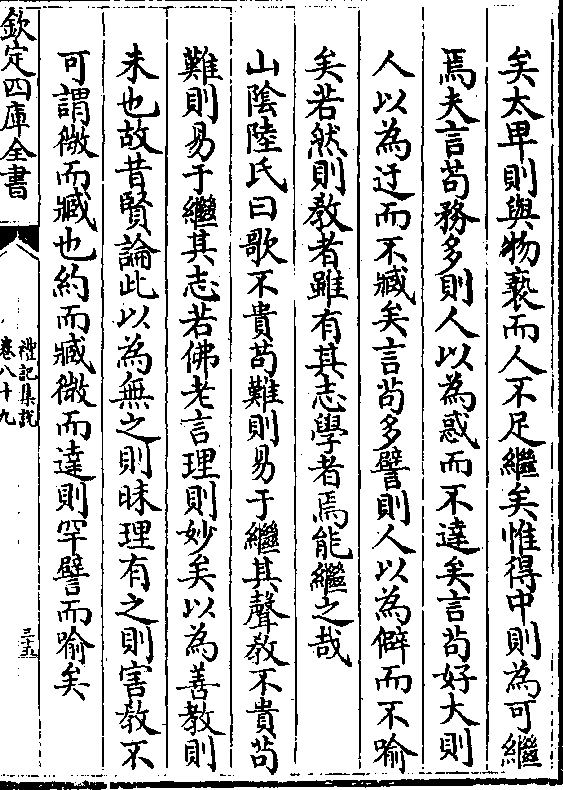 矣太卑則與物褻而人不足繼矣惟得中則為可繼
焉夫言苟務多則人以為惑而不達矣言苟好大則
人以為迂而不臧矣言苟多譬則人以為僻而不喻
矣若然則教者雖有其志學者焉能繼之哉
山陰陸氏曰歌不貴苟難則易于繼其聲教不貴苟
難則易于繼其志若佛老言理則妙矣以為善教則
未也故昔賢論此以為無之則昧理有之則害教不
可謂微而臧也約而臧微而達則罕譬而喻矣
欽定四庫全書
禮記集說
卷八十九
三十五